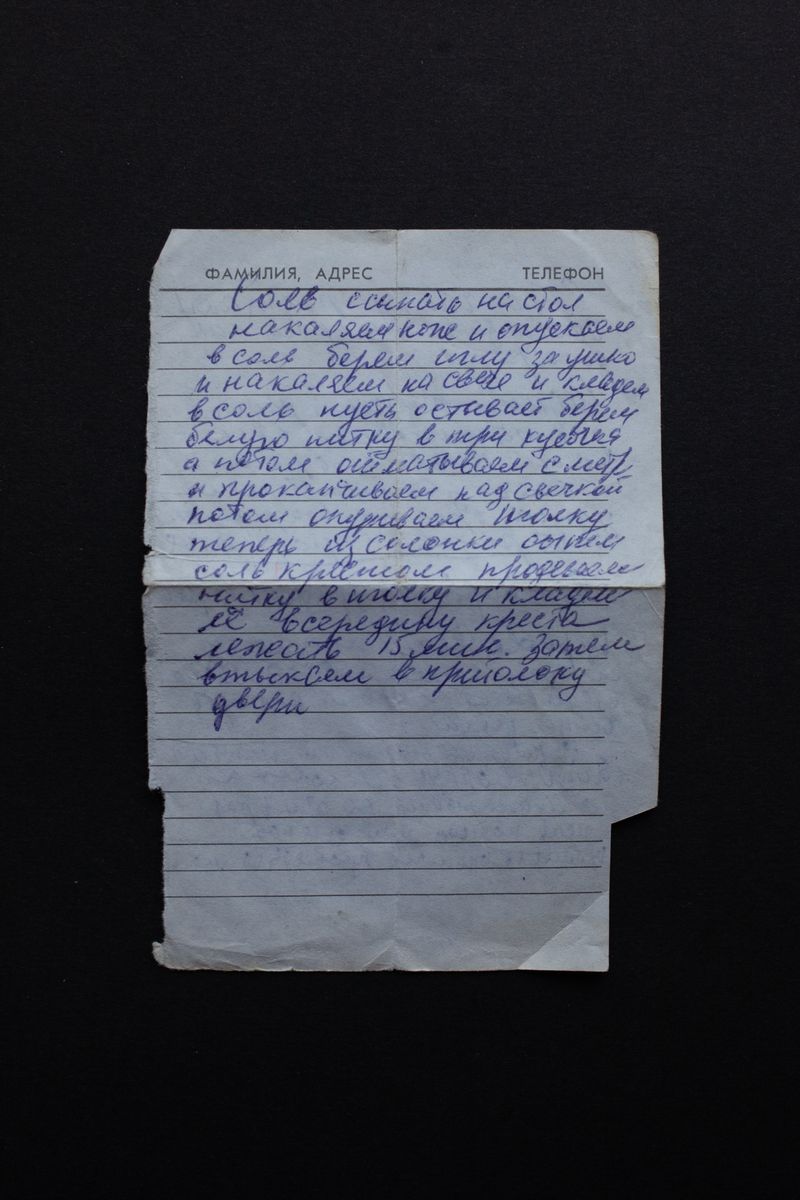 ФАМИЛИЯ, АДРЕС ТЕЛЕФОН
Соль ссыпать на стол
накаляем нож и опускаем
в соль берем иглу за ушко
и накаляем на свече и кладем
в соль пусть остывает берем
белую нитку в три кусочка
а потом отматываем с метр
и прокапчиваем над свечкой
потом иголку
теперь из солонки сыпем
соль крестом продеваем
нитку в иголку и кладем
её всередину креста
лежать 15 мин. Затем
втыкаем в притолоку
двери